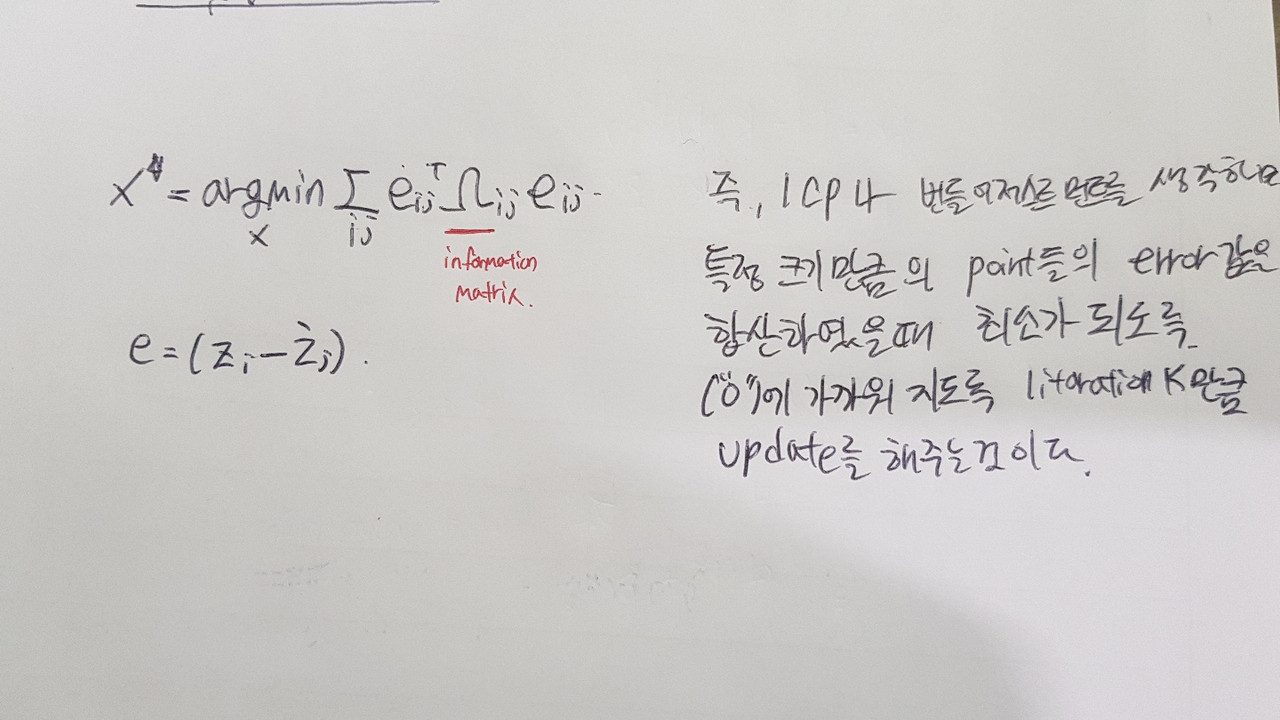 x* = argmin Σ eᵢⱼᵀ Ωᵢⱼ eᵢⱼ
x ij
information
matrix.
e = (zᵢ - ẑⱼ).
즉, ICP나 번들어저스트먼트를 생각하면
특정 크기만큼의 point들의 error값을
합산하였을때 최소가 되도록
("0")에 가까워 지도록 Iteration K만큼
update를 해주는것이다.